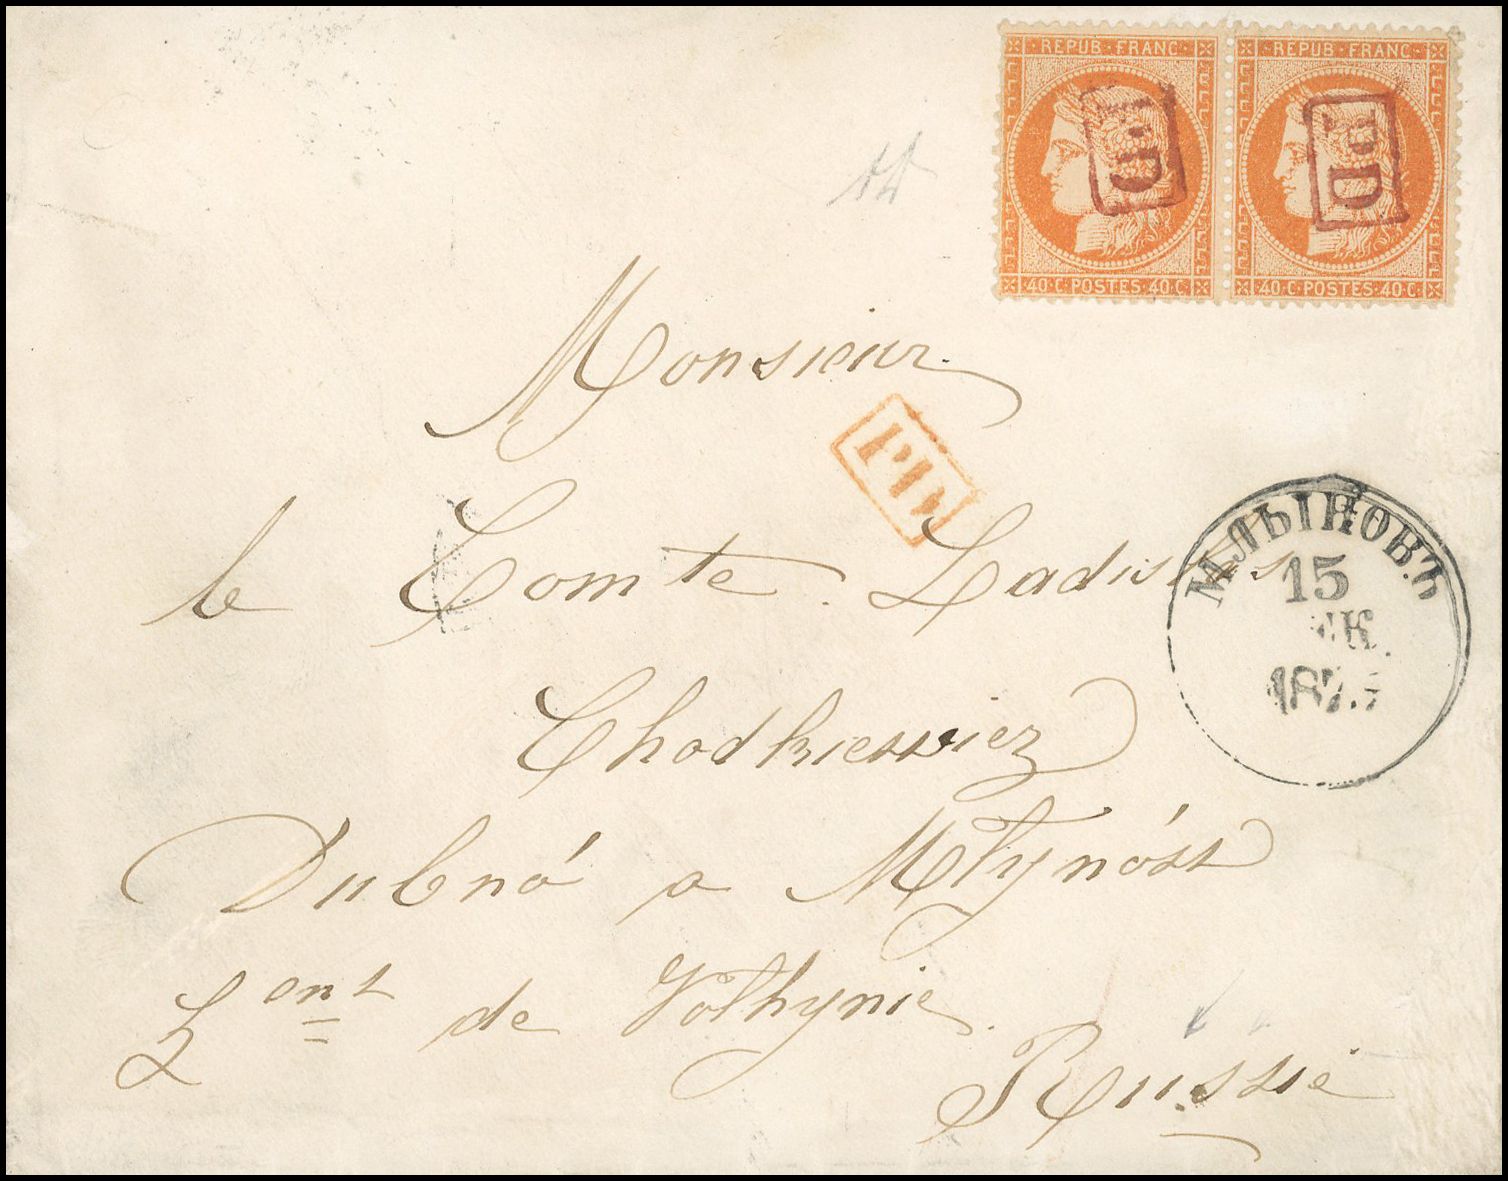 REPUB·FRANC· REPUB·FRANC·
PD PD
40·C·POSTES·40·C 40·C·POSTES·40·C
Monsieur
PD
le Comte Ladislas
Chodkiewicz
МЛЫНОВЪ
15
ЕК.
187
Dubnó a Młynów
de Volhynie
Russie